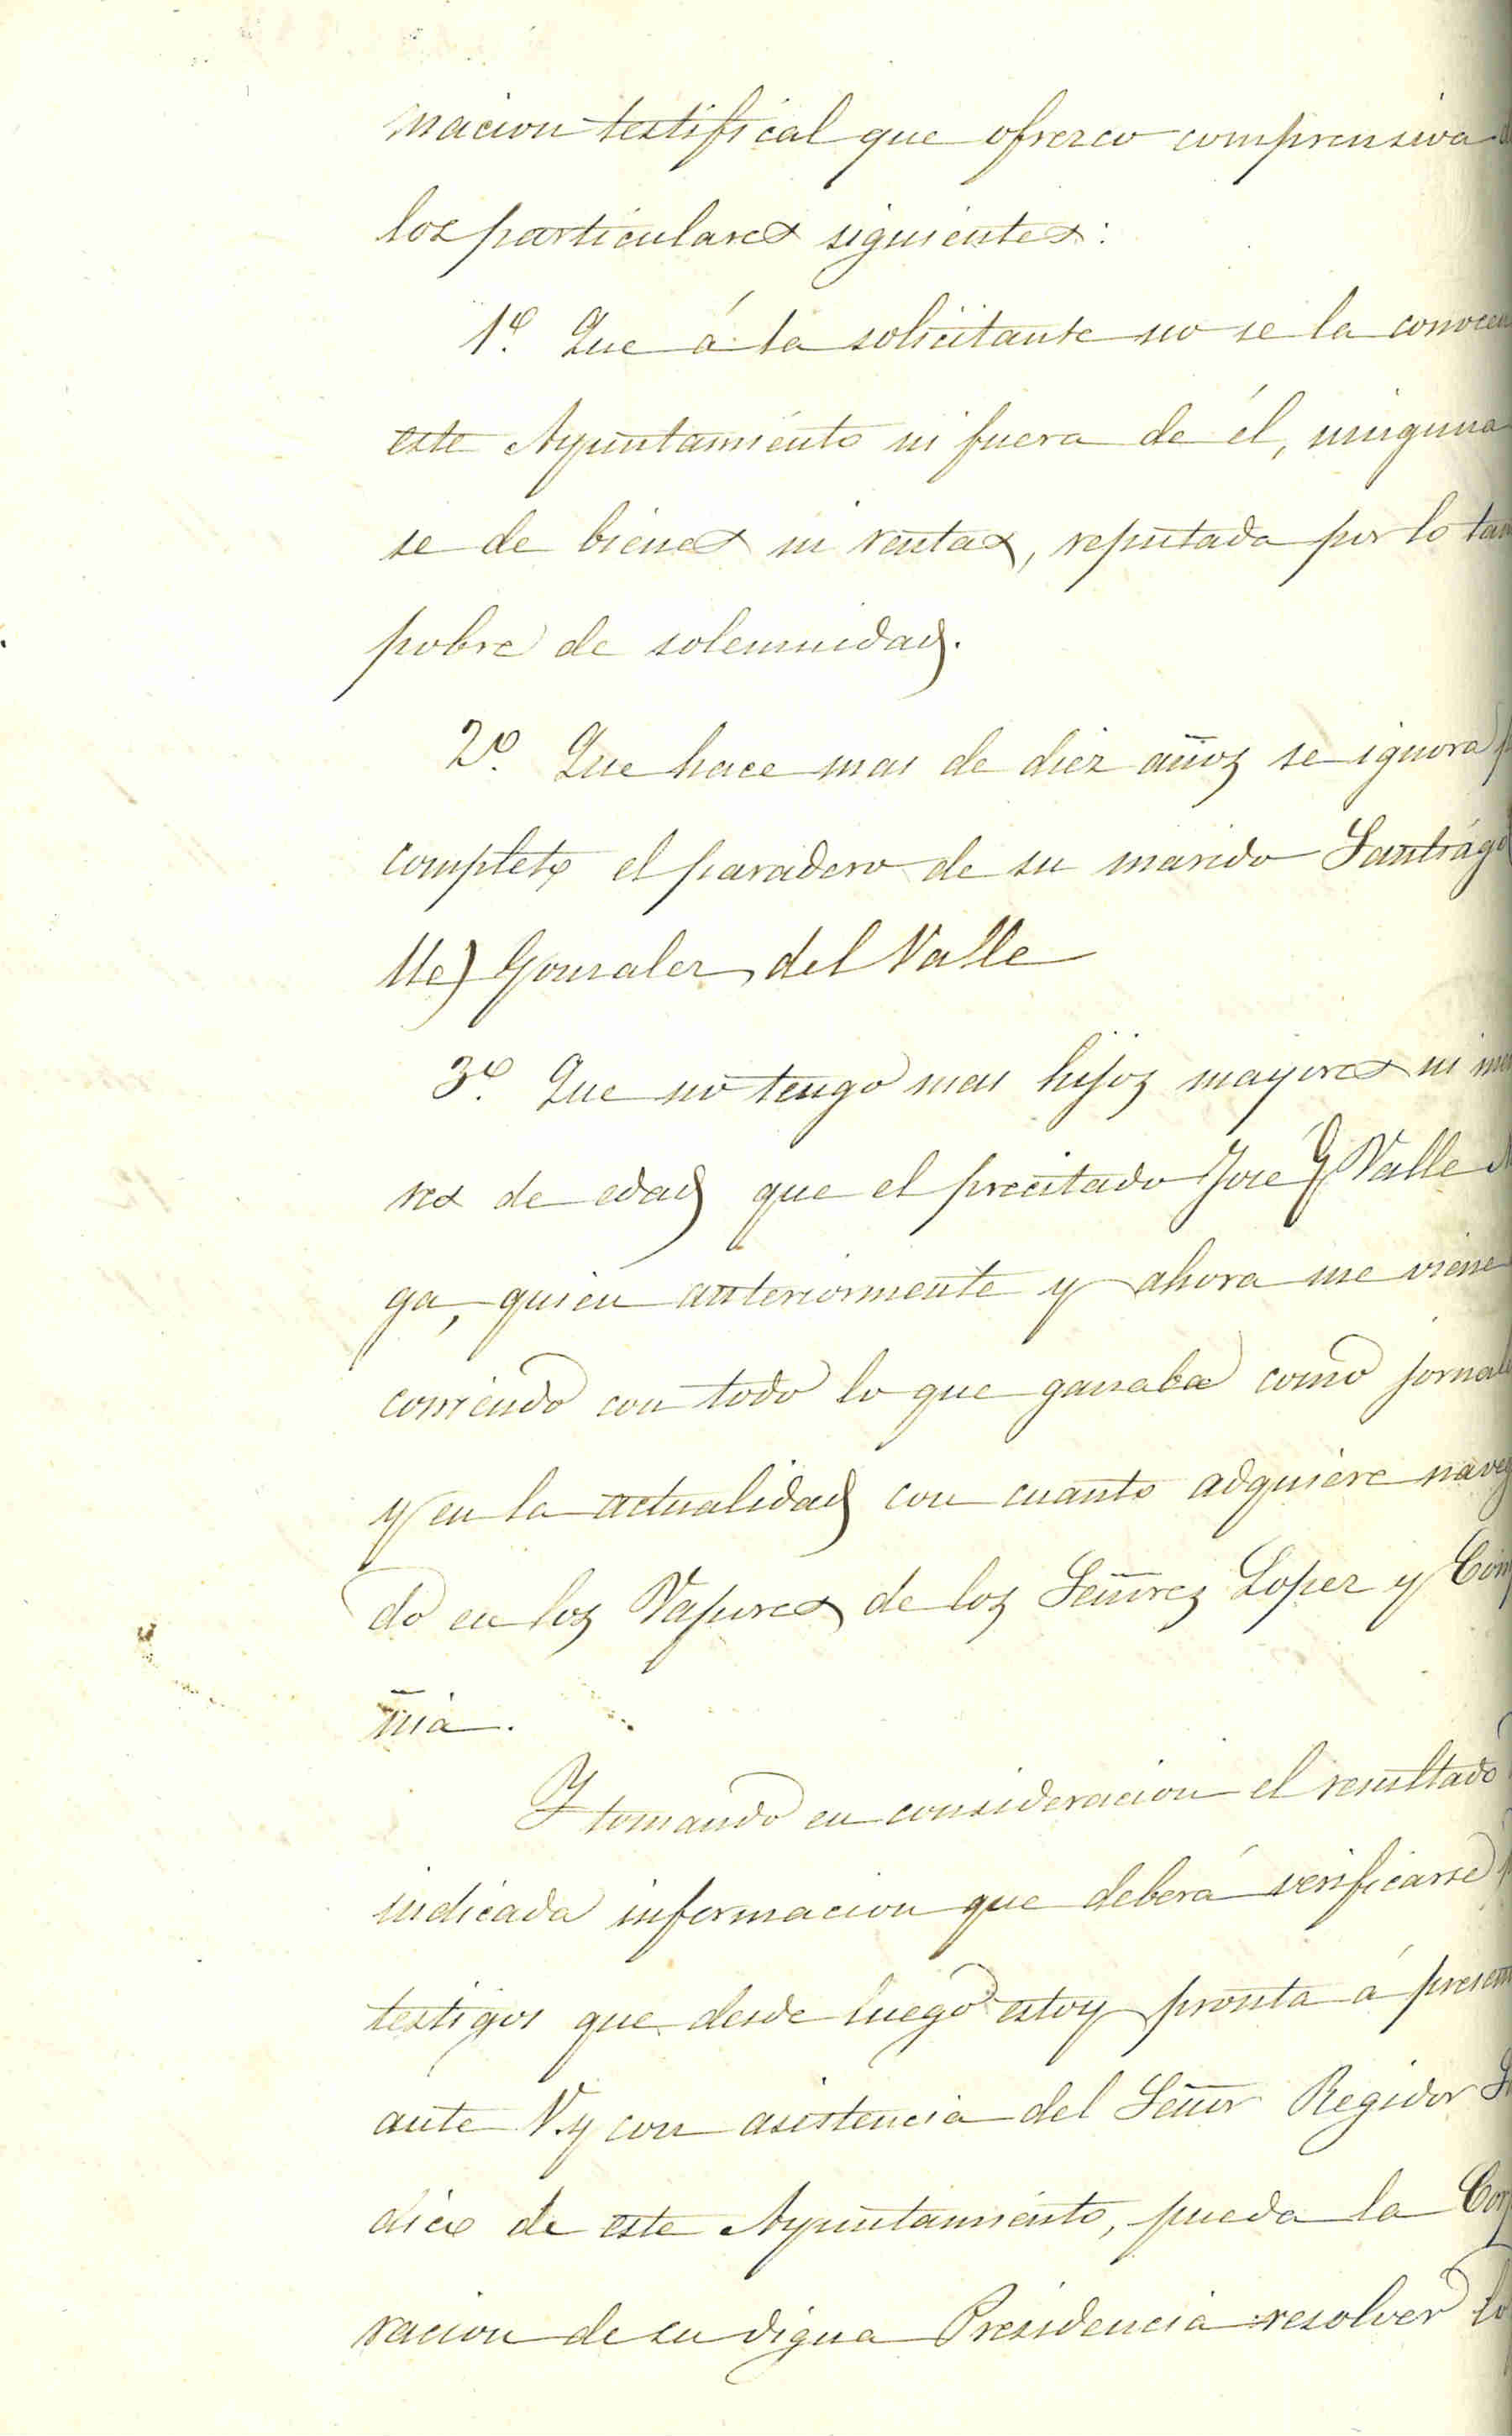 macion testifical que ofrezco comprensiva
los particulares siguientes:
1º. Que á la solicitante no se la conoce
este Ayuntamiento ni fuera de él, ninguna
se de bienes ni rentas, reputada por lo tan
pobre de solemnidad.
2º. Que hace mas de diez años se ignora
completo el paradero de su marido Santiago
lle) Gonzalez del Valle
3º. Que no tengo mas hijos mayores ni me
res de edad que el precitado José G Valle
ga, quien anteriormente y ahora me viene
corriendo con todo lo que ganaba como jornal
y en la actualidad con cuanto adquiere naveg
do en los Vapores de los Señores Lopez y Com
ñia.
Y tomando en consideracion el resultado
indicada informacion que deberá verificarse
testigos que desde luego estoy pronta á presen
ante V. y con asistencia del Señor Regidor
dico de este Ayuntamiento, pueda la Cor
racion de su digna Presidencia resolver lo